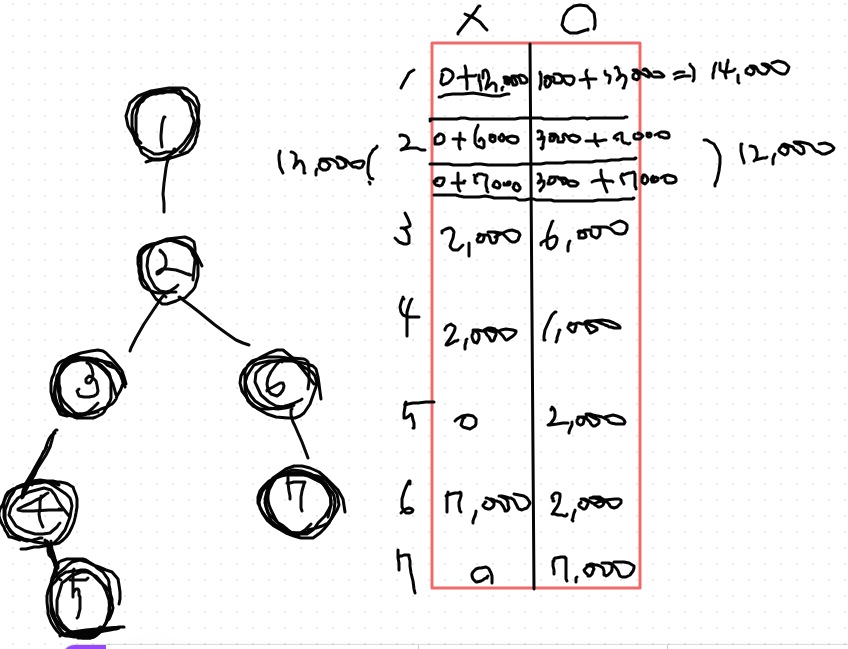 X O
1 0+13,000 1000+13000 => 14,000
1
2 0+6000 3000+2000
13,000( ) 12,000
0+7000 3000+7000
3 2,000 6,000
2
4 2,000 1,000
3 6
5 0 2,000
4 7
6 7,000 2,000
7 0 7,000
5